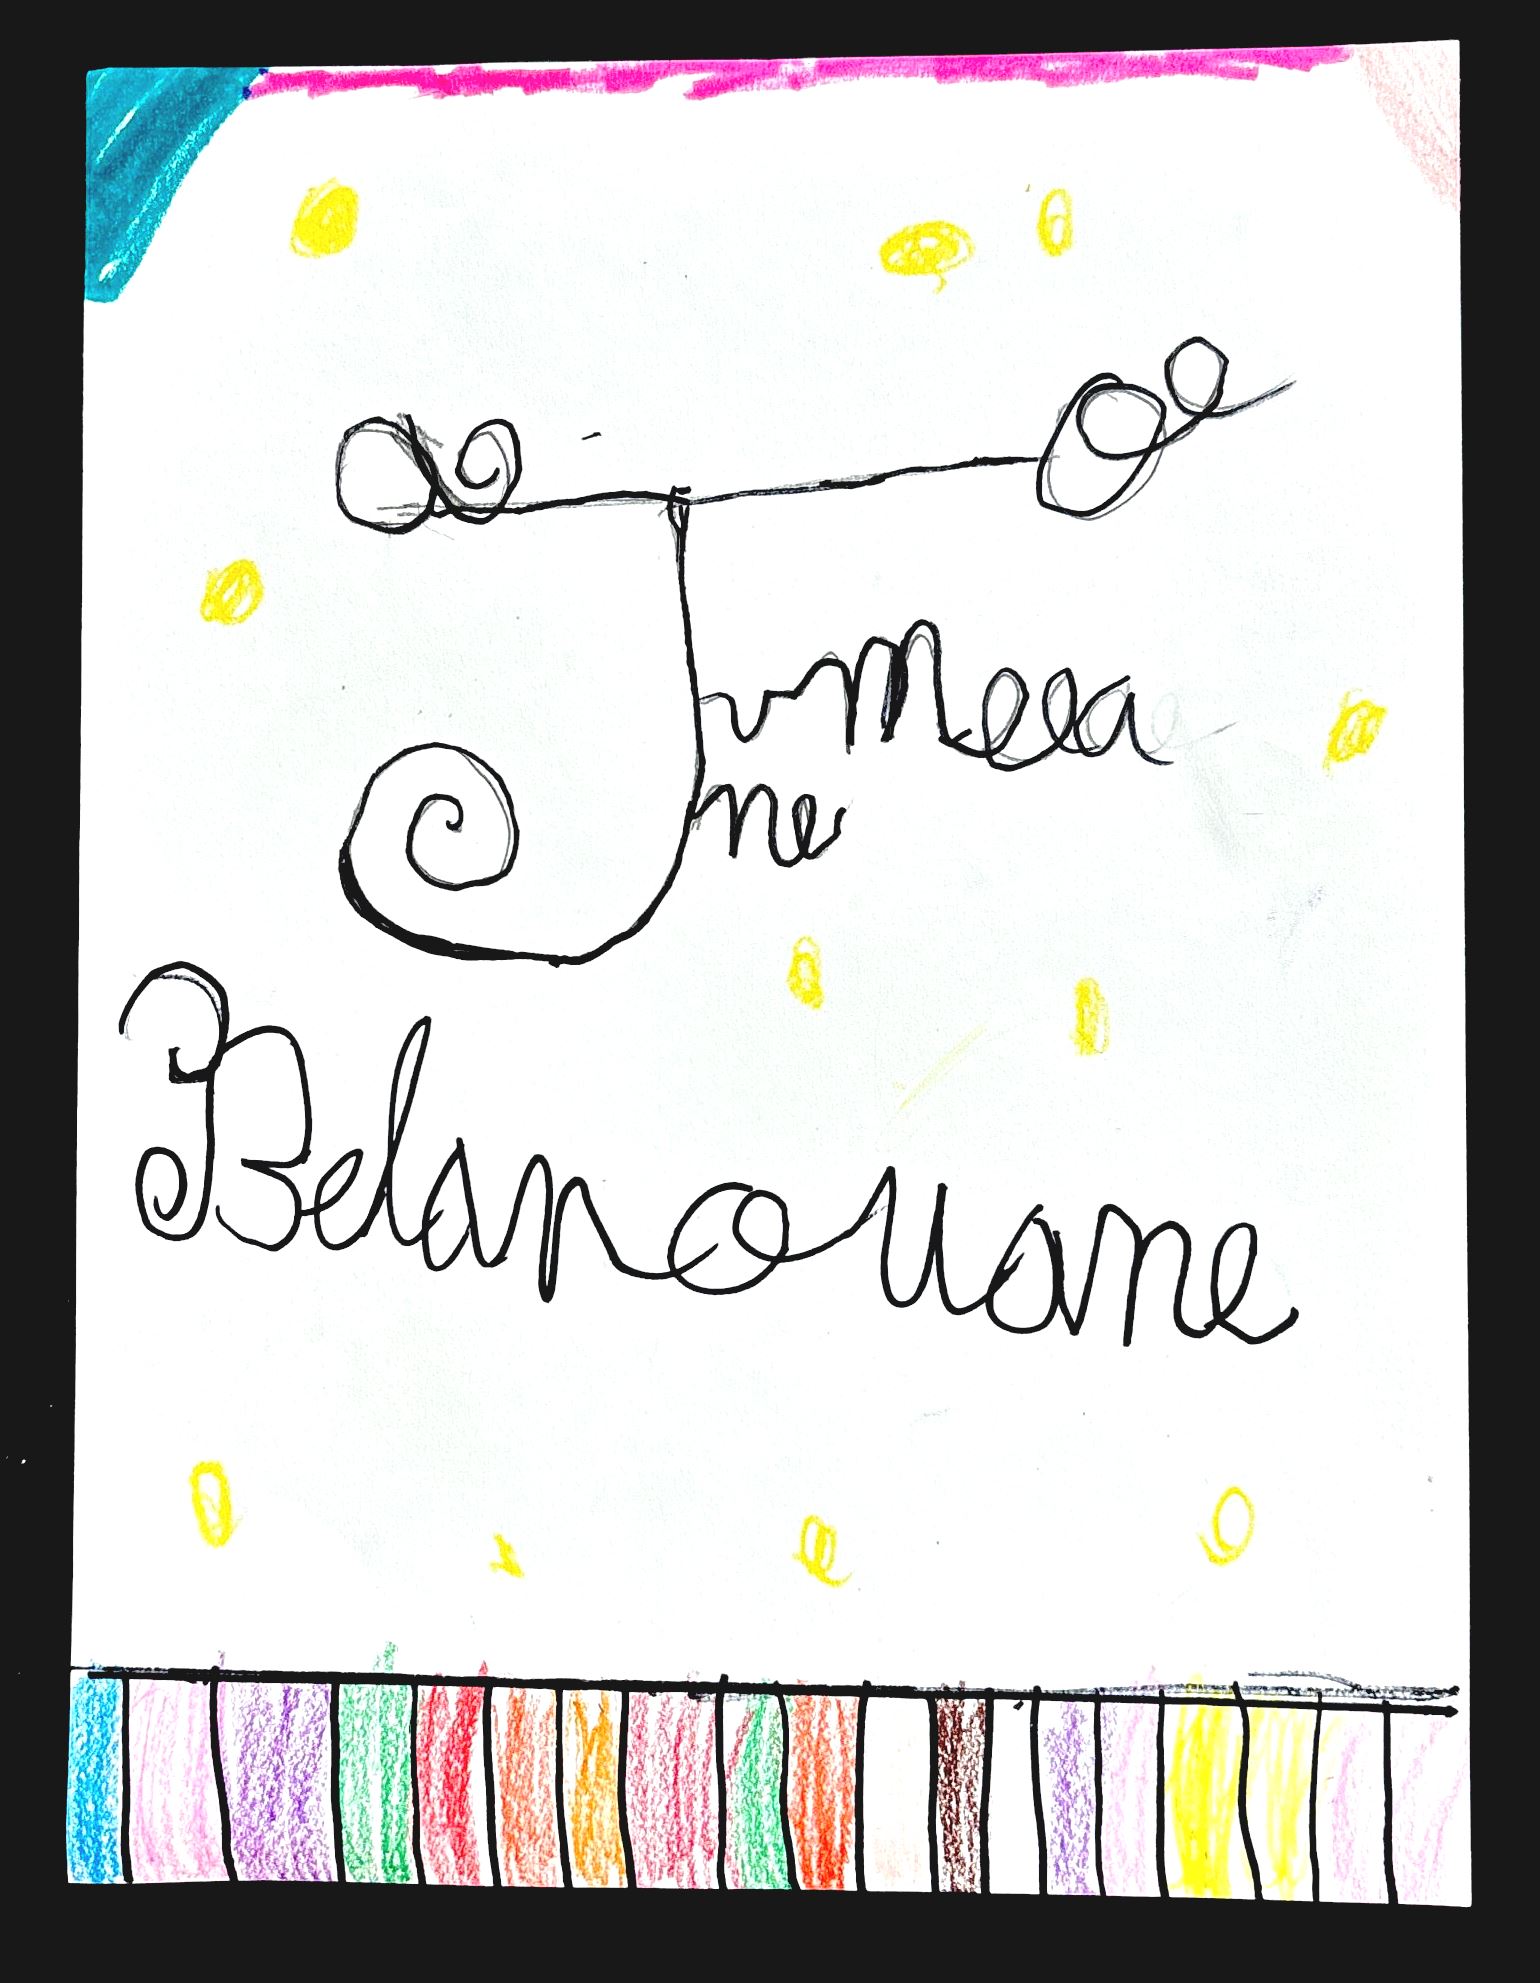 Jumeea
ne
Belanouane